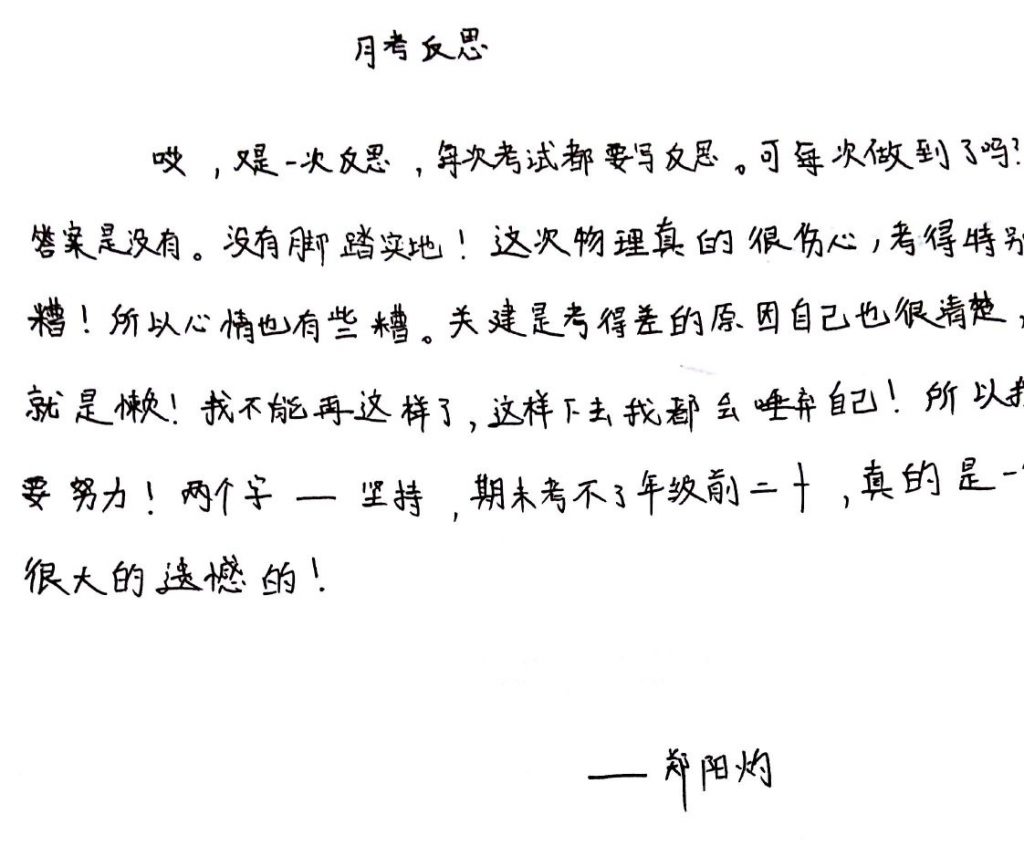 月考反思
哎，又是一次反思，每次考试都要写反思。可每次做到了吗？
答案是没有。没有脚踏实地！这次物理真的很伤心，考得特别
糟！所以心情也有些糟。关建是考得差的原因自己也很清楚，
就是懒！我不能再这样了，这样下去我都会唾弃自己！所以我
要努力！两个字—坚持，期末考不了年级前二十，真的是一
很大的遗憾的！
——郑阳灼